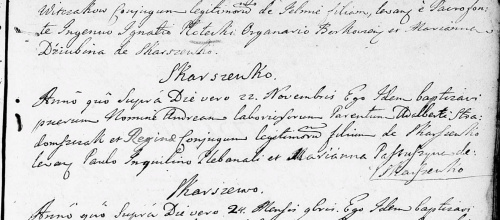 Witczakow Conjugum legitimorum de Helmce filiam, levan: e Sacro fon-
te Ingenuo Ignatio Organario et Marianna
Dziubina de Skarszewko.
Skarszewko.
Anno quo Supra Die vero 22. Novembris Ego Idem baptizavi
puerum Nomine Andream laboriosorum Parentum Adalberti Stra-
et Reginæ Conjugum legitimorum filium de Skarszewko
levan: Paulo Inquilino Plebanali et Marianna de
Skarszewko
Skarszewo.
Anno quo Supra Die vero 24. Mensis 9bris. Ego Idem baptizavi